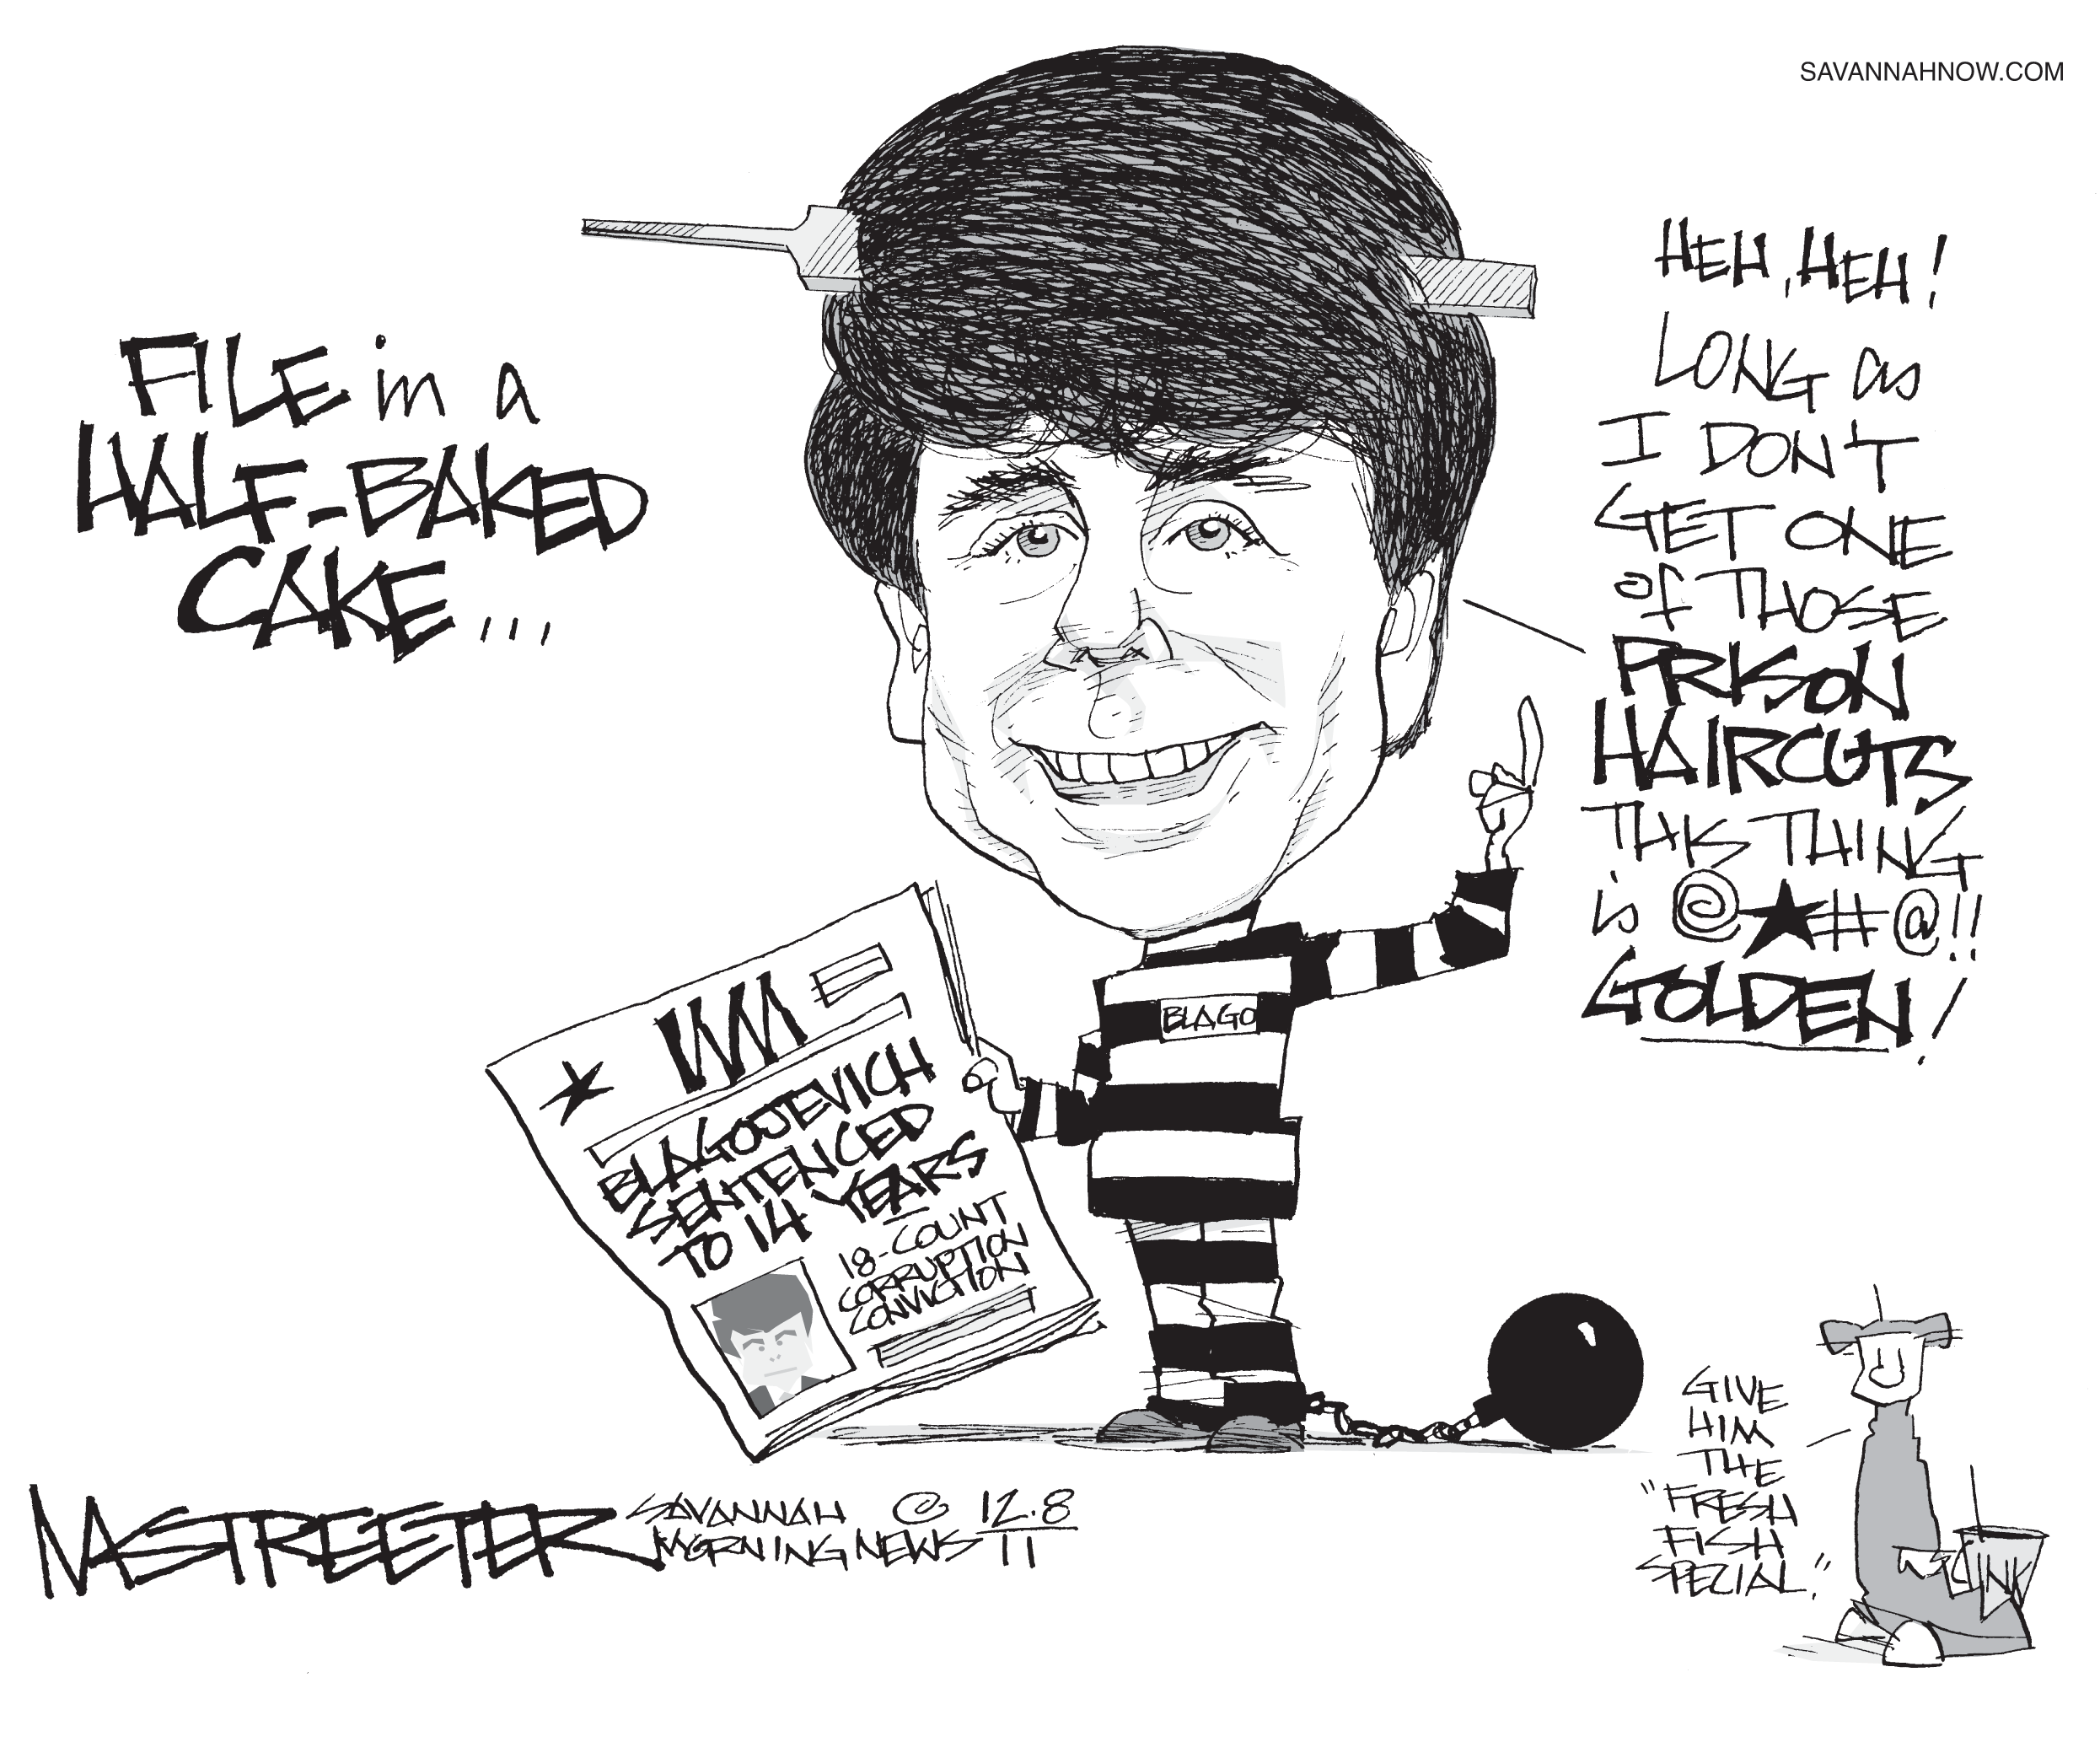 SAVANNAHNOW.COM
FILE in a
HALF-BAKED
CAKE...
HEH, HEH!
LONG as
I DON'T
GET ONE
of THOSE
PRISON
HAIRCUTS
THIS THING
is @★#@!!
GOLDEN!
BLAGO
BLAGOJEVICH
SENTENCED
TO 14 YEARS
18-COUNT
CORRUPTION
CONVICTION
GIVE
HIM
THE
"FRESH
FISH
SPECIAL."
MSTREETER
SAVANNAH
MORNING NEWS
© 12.8
11